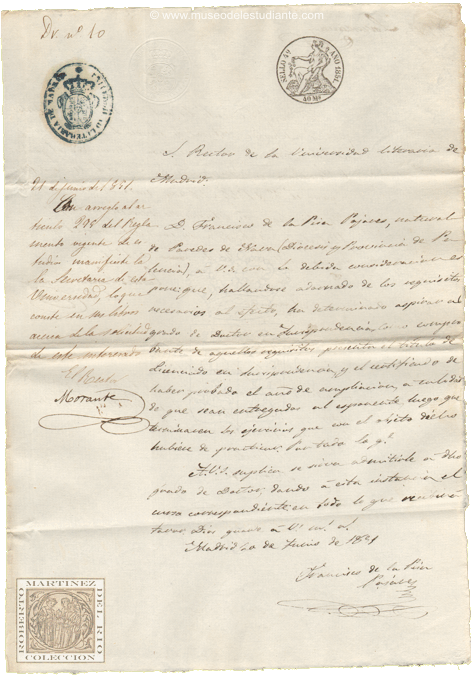 © www.museodelestudiante.com
Dr. nº 10
SELLO 4º AÑO 1851.
40 MS
UNIVERSIDAD LITERARIA DE MADRID
S. Rector de la Universidad literaria de
Madrid.
D. Francisco de la Pisa Pajares, natural
de Paredes de Nava (Diocesis y Provincia de Pa
lencia), a V.S. con la debida consideracion es
pone: que, hallandose adornado de los requisitos
necesarios al efecto, ha determinado aspirar al
grado de Doctor en Jurisprudencia, como
de aquellos requisitos presenta el titulo de
Licenciado en Jurisprudencia y el certificado de
haber probado el año de ampliacion, a calidad
de que sean entregados al esponente luego que
terminasen los ejercicios que con el objeto
hubiere de practicar. Por tanto
A V.S. suplica se sirva admitirle a dho
grado de Doctor, dando a esta instancia el
curso correspondiente, en todo lo que
Madrid 20 de Junio de 1851
Francisco de la Pisa
Pajares
21 de junio de 1851.
Con arreglo al ar
ticulo 298 del Regla
mento vigente de es
tudios manifieste
la Secretaria de esta
Universidad, lo que
conste en sus libros
acerca de la solicitud
de este interesado
El Rector
Morante
ROBERTO MARTINEZ DEL RIO
COLECCION